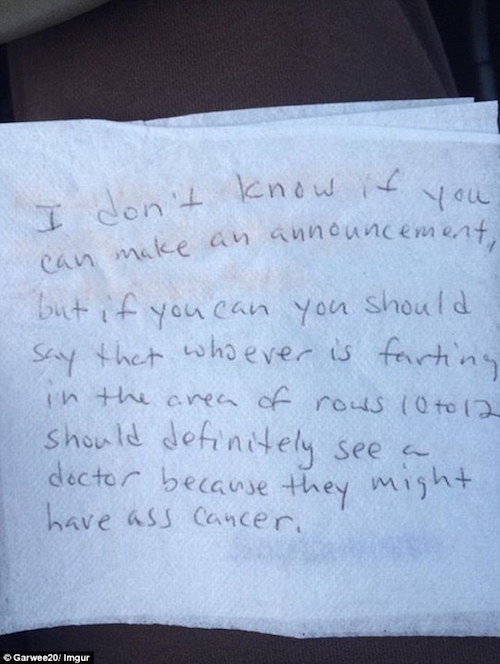 I don't know if you
can make an announcement,
but if you can you should
say that whoever is farting
in the area of rows 10 to 12
should definitely see a
doctor because they might
have ass cancer.
© Garwee20/ Imgur